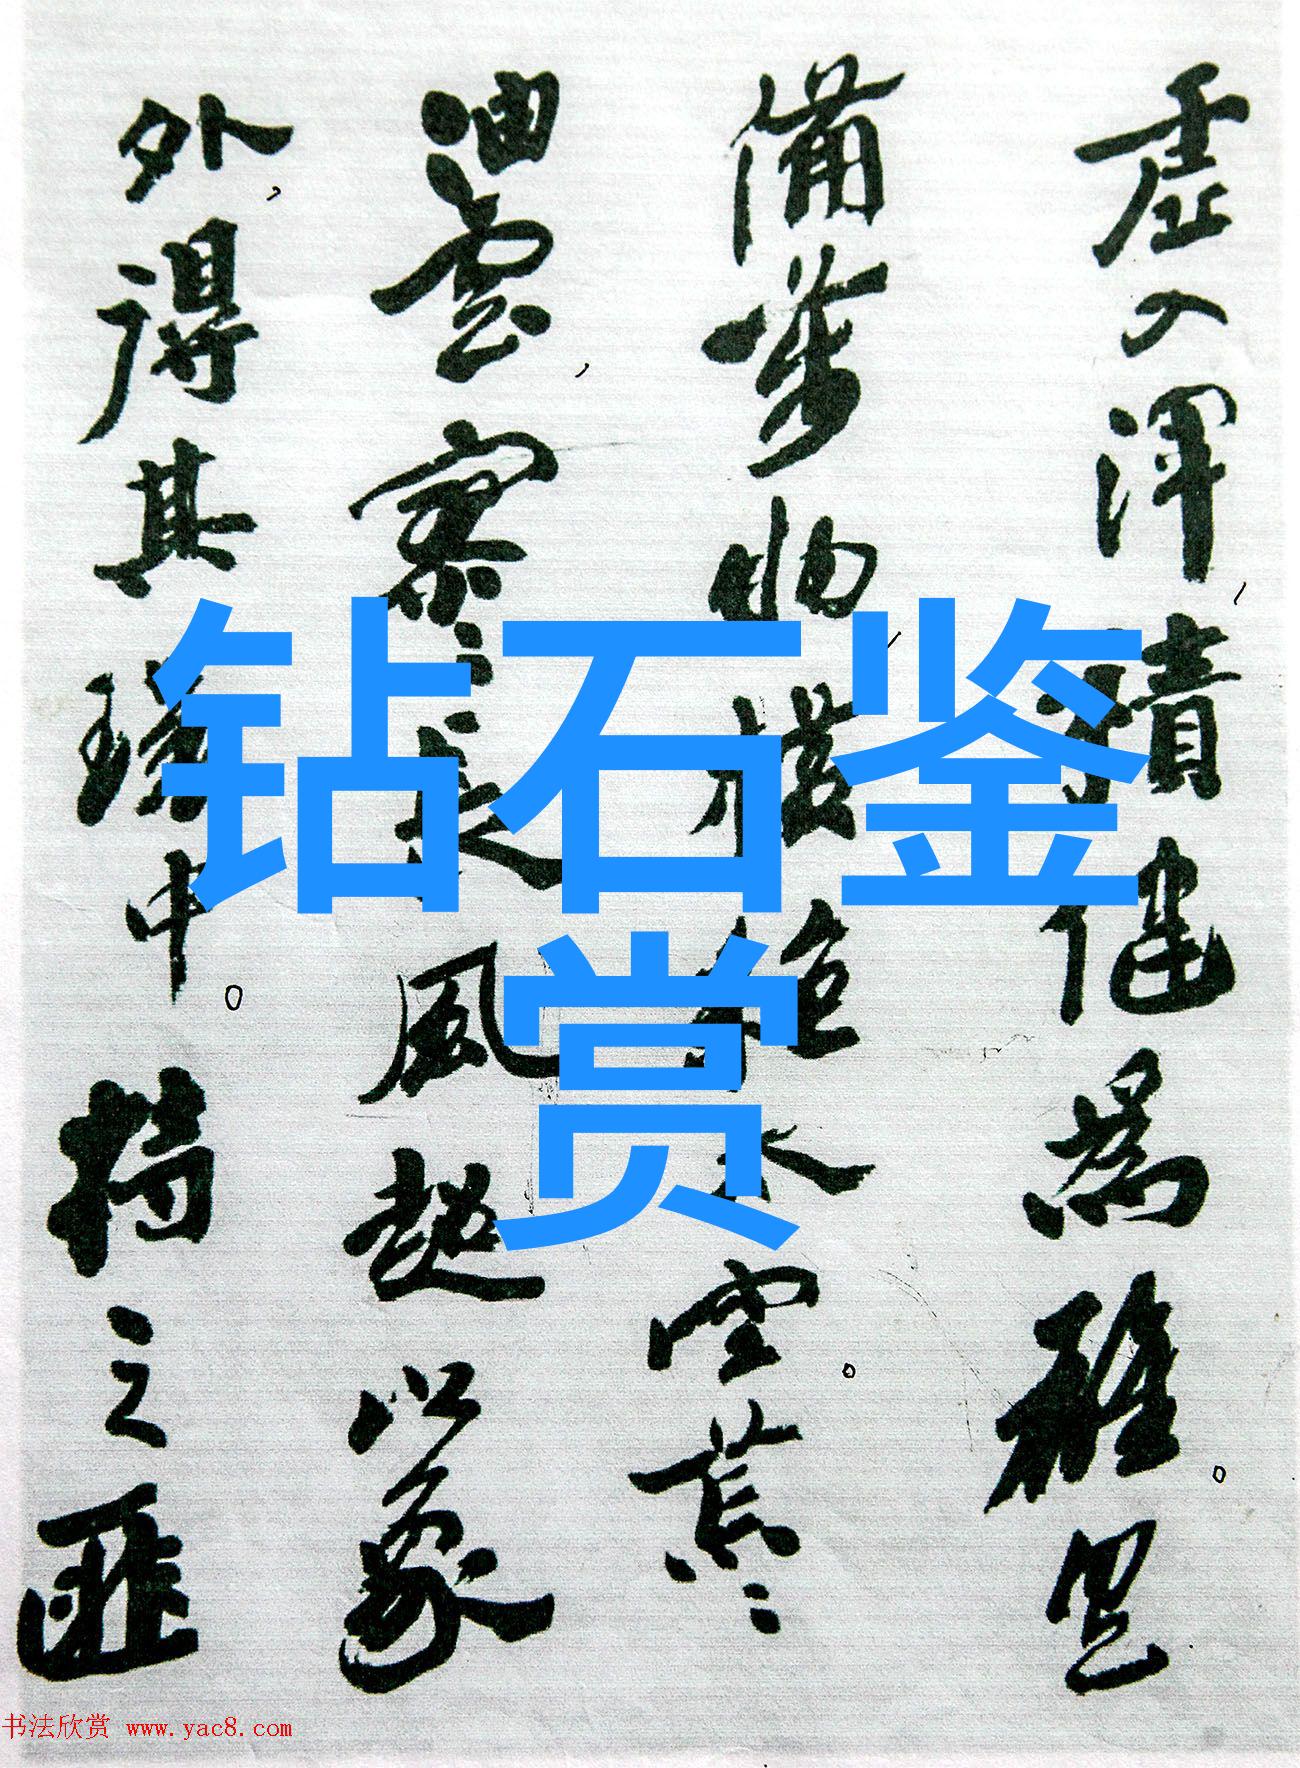 虛入渾，積健為雄。具
備萬物，橫絕太空。荒々
油雲，寥々長風。超以象
外，得其環中。持之匪
钻石鉴
赏
书法欣赏 www.yac8.com